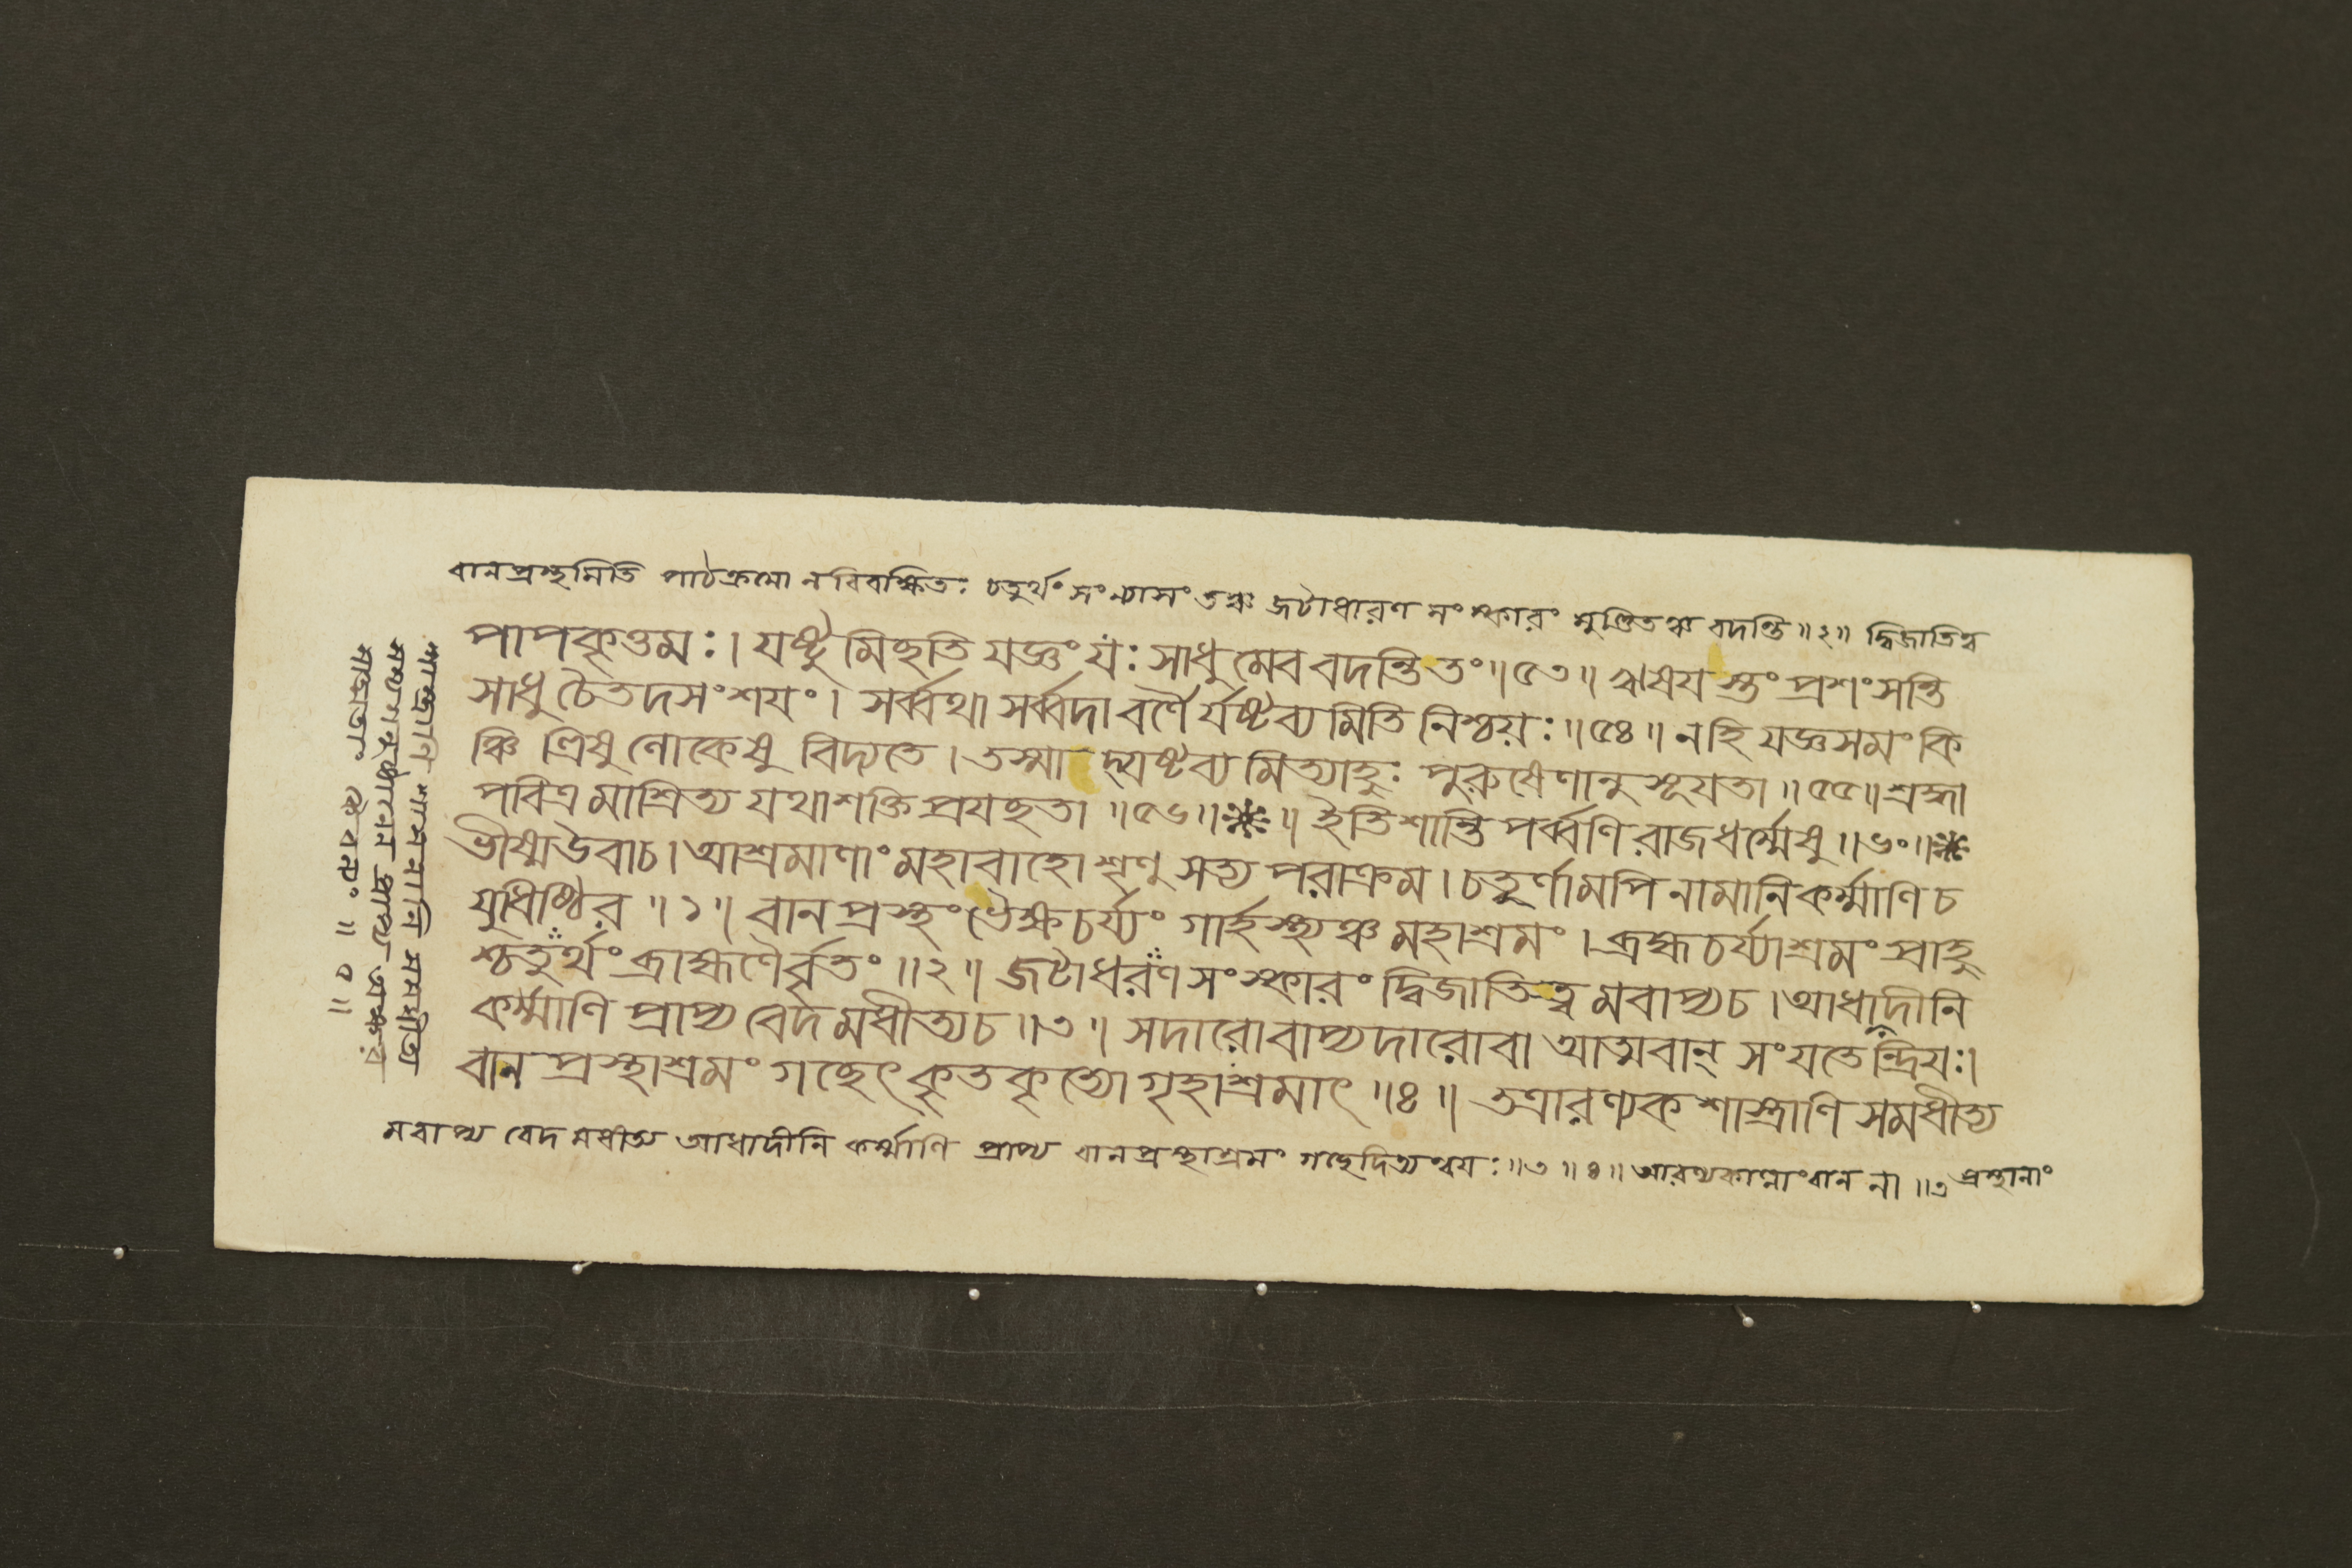 বানপ্রস্থমিতি পাঠক্রমো ন বিবক্ষিতঃ চতুর্থং সংন্যাসং তঞ্চ জটাধারণ সংস্কারং মুণ্ডিতঞ্চ বদন্তি ॥২॥ দ্বিজাতিত্ব
পাপকৃত্তমঃ। যষ্টুমিচ্ছতি যজ্ঞং যঃ সাধুমেব বদন্তি তং॥৫৩॥ ঋষয়স্তং প্রশংসন্তি
সাধু চৈতদসংশয়ং। সর্ব্বথা সর্ব্বদা বর্ণৈর্যষ্টব্যমিতি নিশ্চয়ঃ॥৫৪॥ নহি যজ্ঞসমং কি
ঞ্চি ত্রিষু লোকেষু বিদ্যতে। তস্মাদ্যষ্টব্যমিত্যাহুঃ পুরুষেণানুসূয়তা॥৫৫॥ শ্রদ্ধা
পবিত্রমাশ্রিত্য যথাশক্তি প্রযচ্ছতা ॥৫৬॥❋॥ ইতি শান্তিপর্ব্বণি রাজধর্ম্মেষু॥৬০॥❋
ভীষ্মউবাচ। আশ্রমাণাং মহাবাহো শৃণু সত্যপরাক্রম। চতুর্ণামপি নামানি কর্ম্মাণি চ
যুধিষ্ঠির ॥১॥ বানপ্রস্থং ভৈক্ষচর্য্যং গার্হস্থ্যঞ্চ মহাশ্রমং। ব্রহ্মচর্য্যাশ্রমং প্রাহু
শ্চতুর্থং ব্রাহ্মণৈর্ব্বৃতং॥২॥ জটাধরণসংস্কারং দ্বিজাতিত্বমবাপ্য চ। আধাদীনি
কর্ম্মাণি প্রাপ্য বেদমধীত্য চ॥৩॥ সদারোবাপ্যদারোবা আত্মবান্ সংযতেন্দ্রিয়ঃ।
বানপ্রস্থাশ্রমং গচ্ছেৎ কৃতকৃত্যো গৃহাশ্রমাৎ॥৪॥ তত্রারণ্যকশাস্ত্রাণি সমধীত্য
মবাপ্য বেদমধীত্য আধাদীনি কর্ম্মাণি প্রাপ্য বানপ্রস্থাশ্রমং গচ্ছেদিত্যন্বয়ঃ॥৩॥৪॥ আরণ্যকানাং বান না ॥৩ প্রস্থানাং
শাস্ত্রাণি
কেবলং ॥৫॥